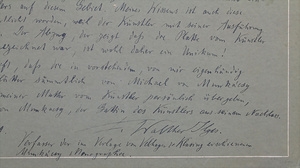 auf diesem Gebiet. Meines Wissens ist auch
worden, weil der Künstler mit seiner Ausführung
Der Abzug, der zeigt, daß die Platte vom Künstler
war, ist wohl daher ein Unikum.
daß die in vorstehenden, von mir eigenhändig
sämmtlich von Michael von Munkácsy
meiner vom Künstler persönlich übergeben,
von Munkacsy, der Gattin des Künstlers aus seinem Nachlass.
F. Walther Ilges.
Verfasser der im Verlage von Velhagen & Klasing erschienenen
Munkácsy Monographie.